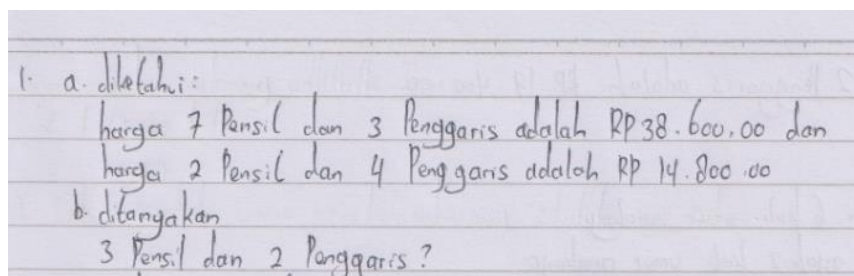 1. a. diketahui:
harga 7 Pensil dan 3 Penggaris adalah RP 38.600,00 dan
harga 2 Pensil dan 4 Penggaris adalah RP 14.800.00
b. ditanyakan
3 Pensil dan 2 Penggaris?